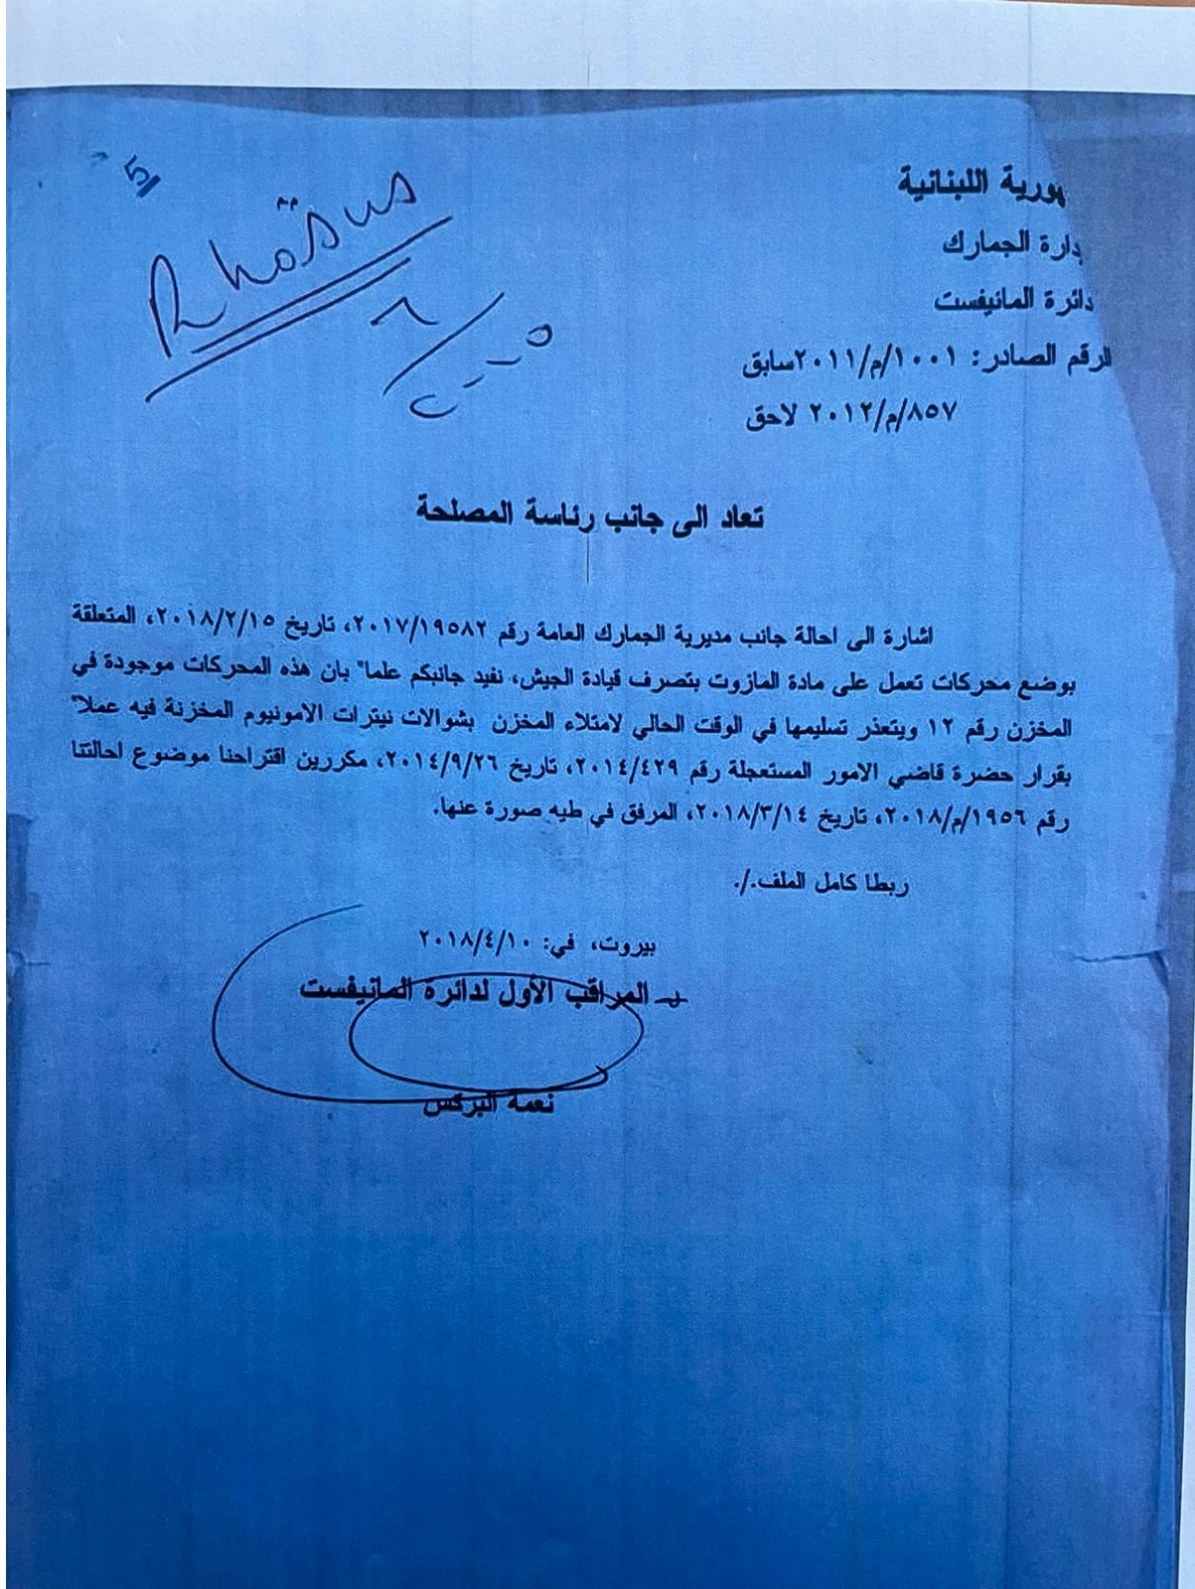 5
Rhösus
هورية اللبنانية
دارة الجمارك
دائرة المانيفست
الرقم الصادر: ١٠٠١/م/٢٠١١سابق
٨٥٧/م/٢٠١٢ لاحق
تعاد الى جانب رئاسة المصلحة
اشارة الى احالة جانب مديرية الجمارك العامة رقم ٢٠١٧/١٩٥٨٢، تاريخ ٢٠١٨/٢/١٥، المتعلقة
بوضع محركات تعمل على مادة المازوت بتصرف قيادة الجيش، نفيد جانبكم علما" بان هذه المحركات موجودة في
المخزن رقم ١٢ ويتعذر تسليمها في الوقت الحالي لامتلاء المخزن بشوالات نيترات الامونيوم المخزنة فيه عملا"
بقرار حضرة قاضي الامور المستعجلة رقم ٢٠١٤/٤٢٩، تاريخ ٢٠١٤/٩/٢٦، مكررين اقتراحنا موضوع احالتنا
رقم ١٩٥٦/م/٢٠١٨، تاريخ ٢٠١٨/٣/١٤، المرفق في طيه صورة عنها.
ربطا كامل الملف./.
بيروت، في: ٢٠١٨/٤/١٠
المراقب الأول لدائرة المانيفست
نعمة البركس